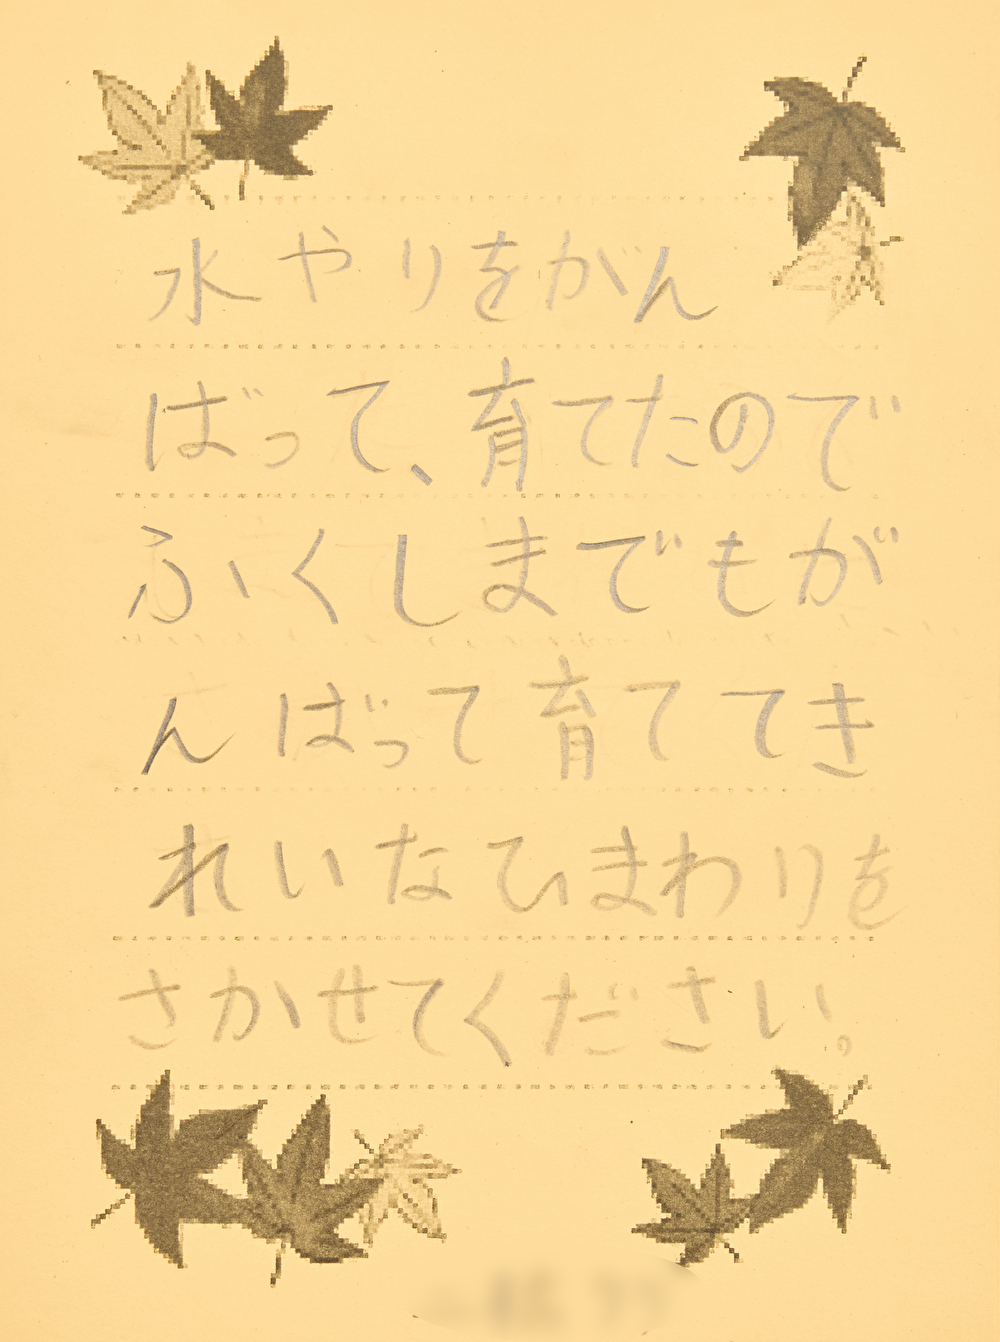 水やりをがん
ばって、育てたので
ふくしまでもが
んばって育ててき
れいなひまわりを
さかせてください。